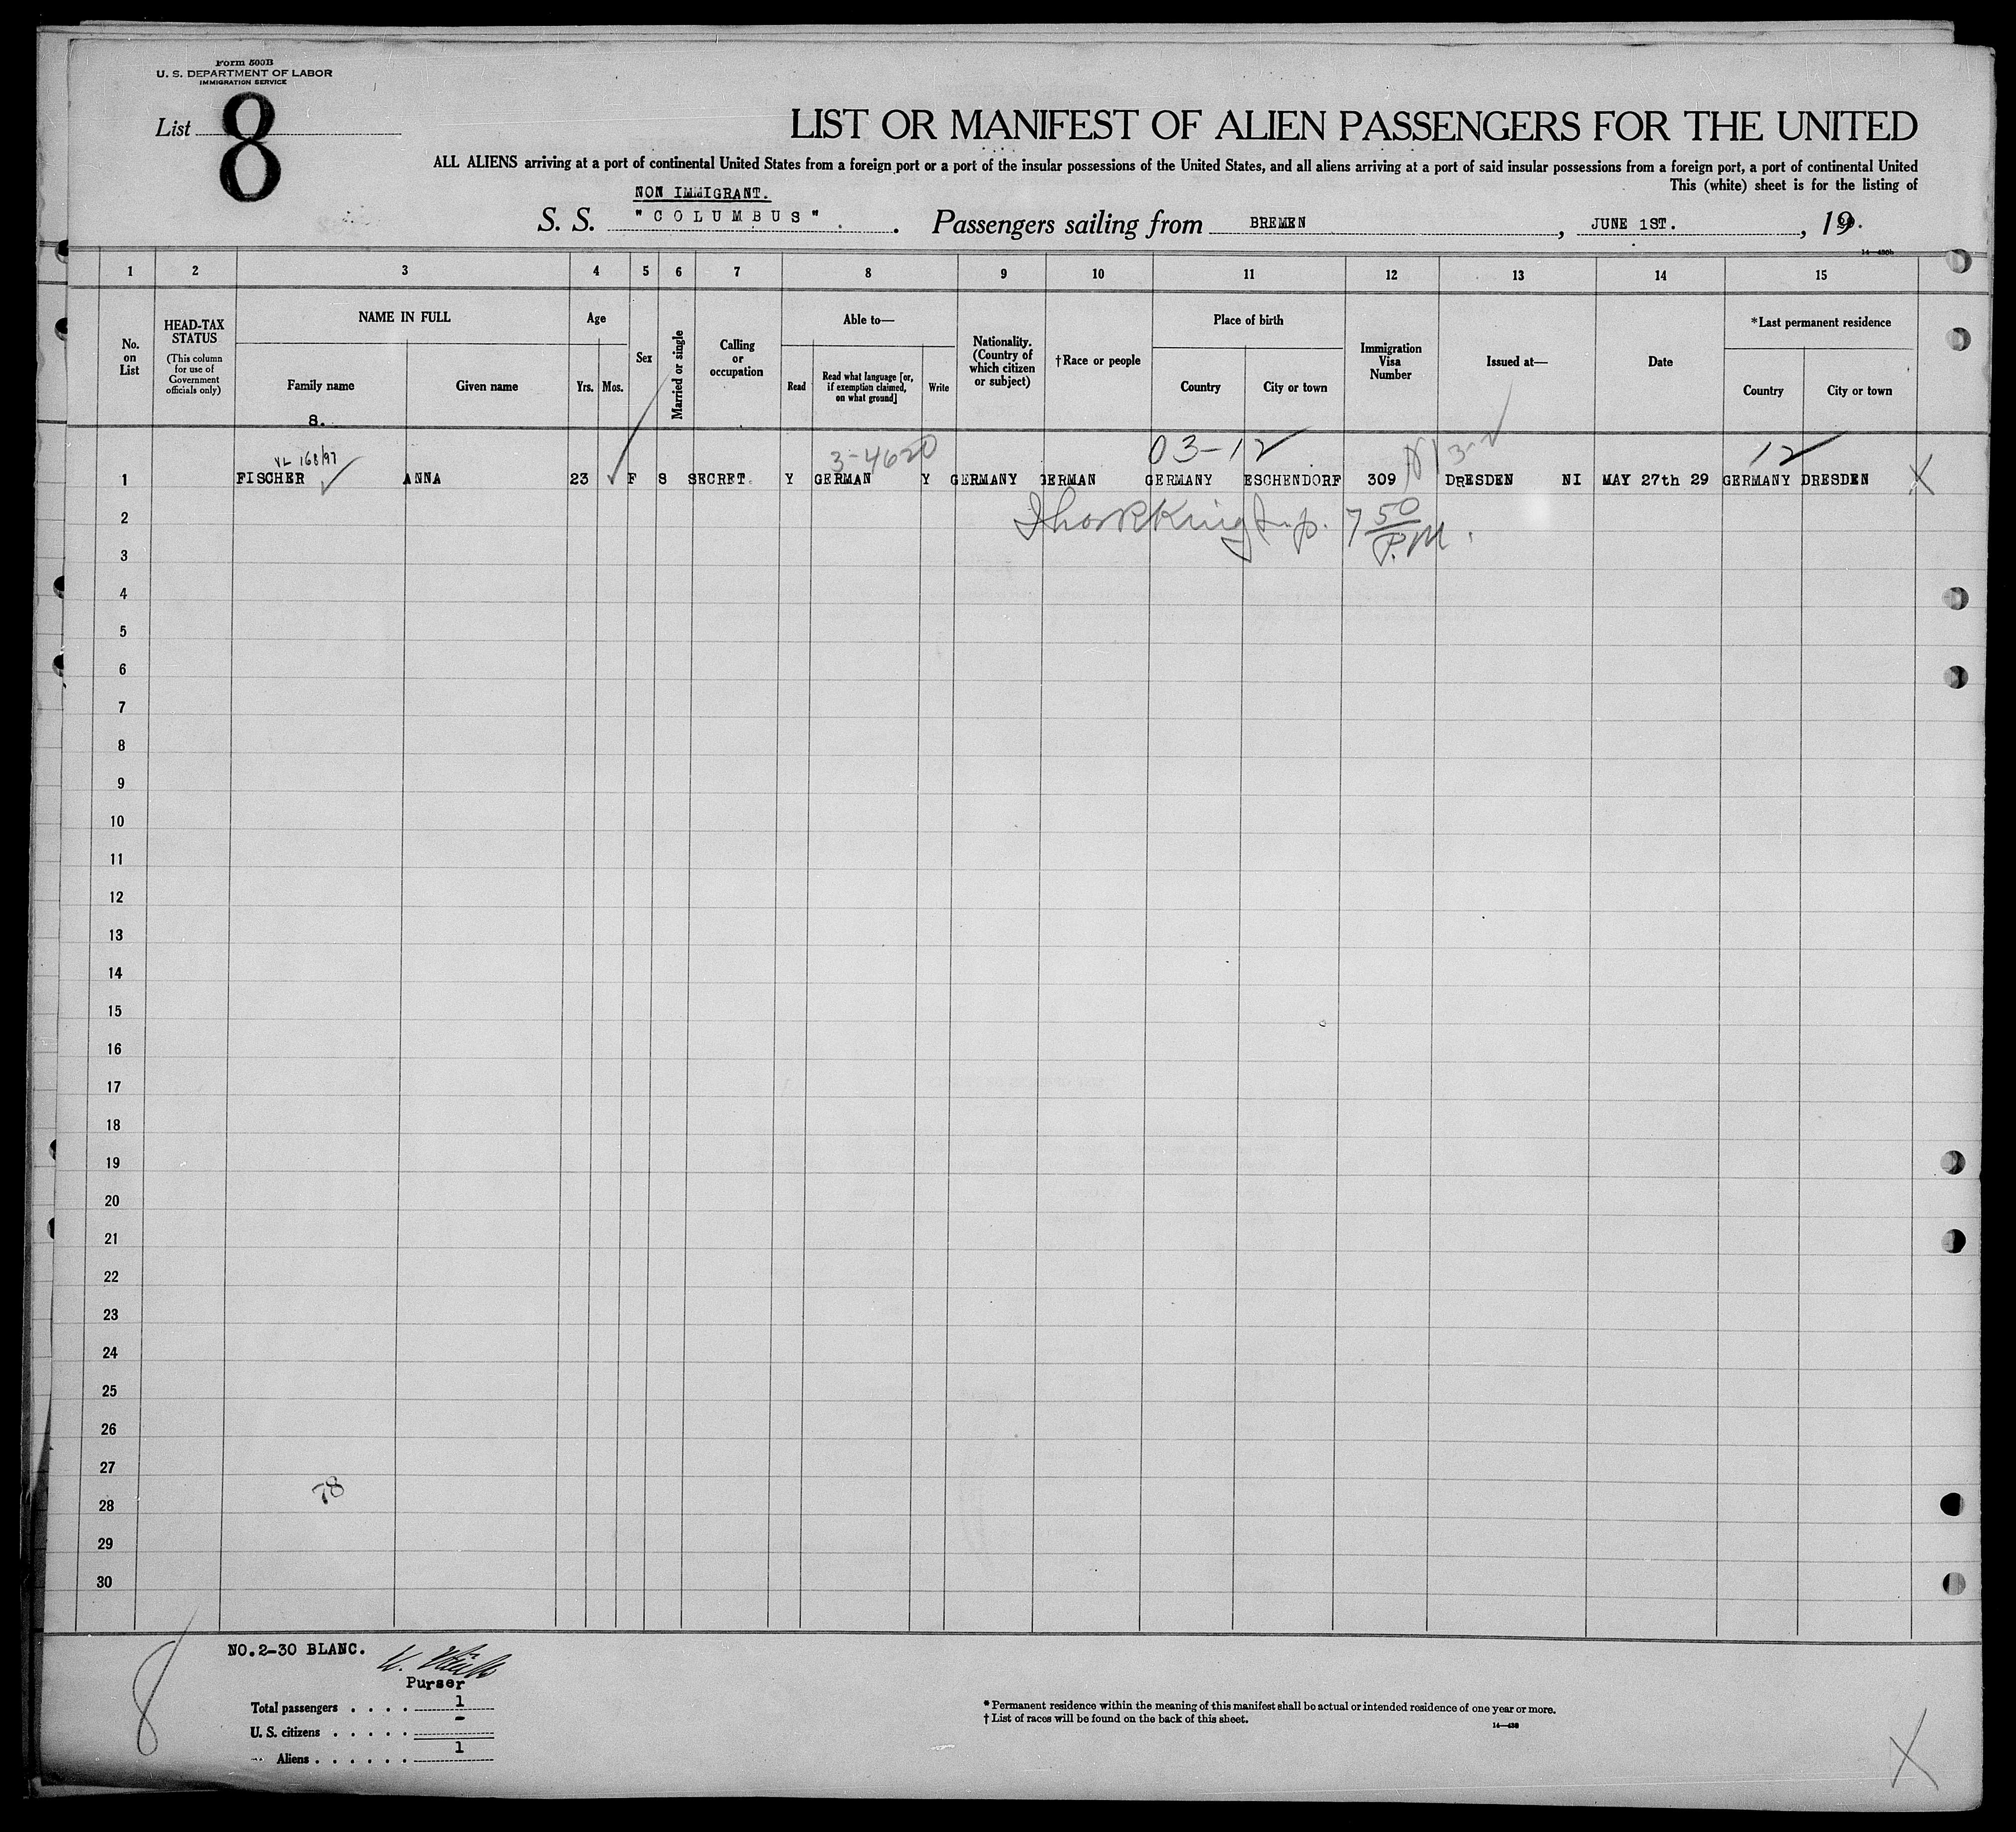 Form 500B
U. S. DEPARTMENT OF LABOR
IMMIGRATION SERVICE
List 8
LIST OR MANIFEST OF ALIEN PASSENGERS FOR THE UNITED
ALL ALIENS arriving at a port of continental United States from a foreign port or a port of the insular possessions of the United States, and all aliens arriving at a port of said insular possessions from a foreign port, a port of continental United
This (white) sheet is for the listing of
NON IMMIGRANT.
S. S. "COLUMBUS". Passengers sailing from BREMEN, JUNE 1ST., 19
14—430b
1 2 3 4 5 6 7 8 9 10 11 12 13 14 15
No. on List
HEAD-TAX STATUS
(This column for use of Government officials only)
NAME IN FULL
Family name
Given name
8.
Age
Yrs. Mos.
Sex
Married or single
Calling or occupation
Able to—
Read
Read what language [or, if exemption claimed, on what ground]
Write
Nationality. (Country of which citizen or subject)
†Race or people
Place of birth
Country
City or town
Immigration Visa Number
Issued at—
Date
*Last permanent residence
Country
City or town
VL 168/97 3-4620 03-12 12
1 FISCHER ANNA 23 F S SECRET. Y GERMAN Y GERMANY GERMAN GERMANY ESCHENDORF 309 DRESDEN NI MAY 27th 29 GERMANY DRESDEN X
2 7 50 P.M.
3
4
5
6
7
8
9
10
11
12
13
14
15
16
17
18
19
20
21
22
23
24
25
26
27
78
28
29
30
8
NO.2-30 BLANC.
Purser
Total passengers . . . . 1
U. S. citizens . . . . . -
Aliens . . . . . . 1
* Permanent residence within the meaning of this manifest shall be actual or intended residence of one year or more.
† List of races will be found on the back of this sheet.
14—430
X